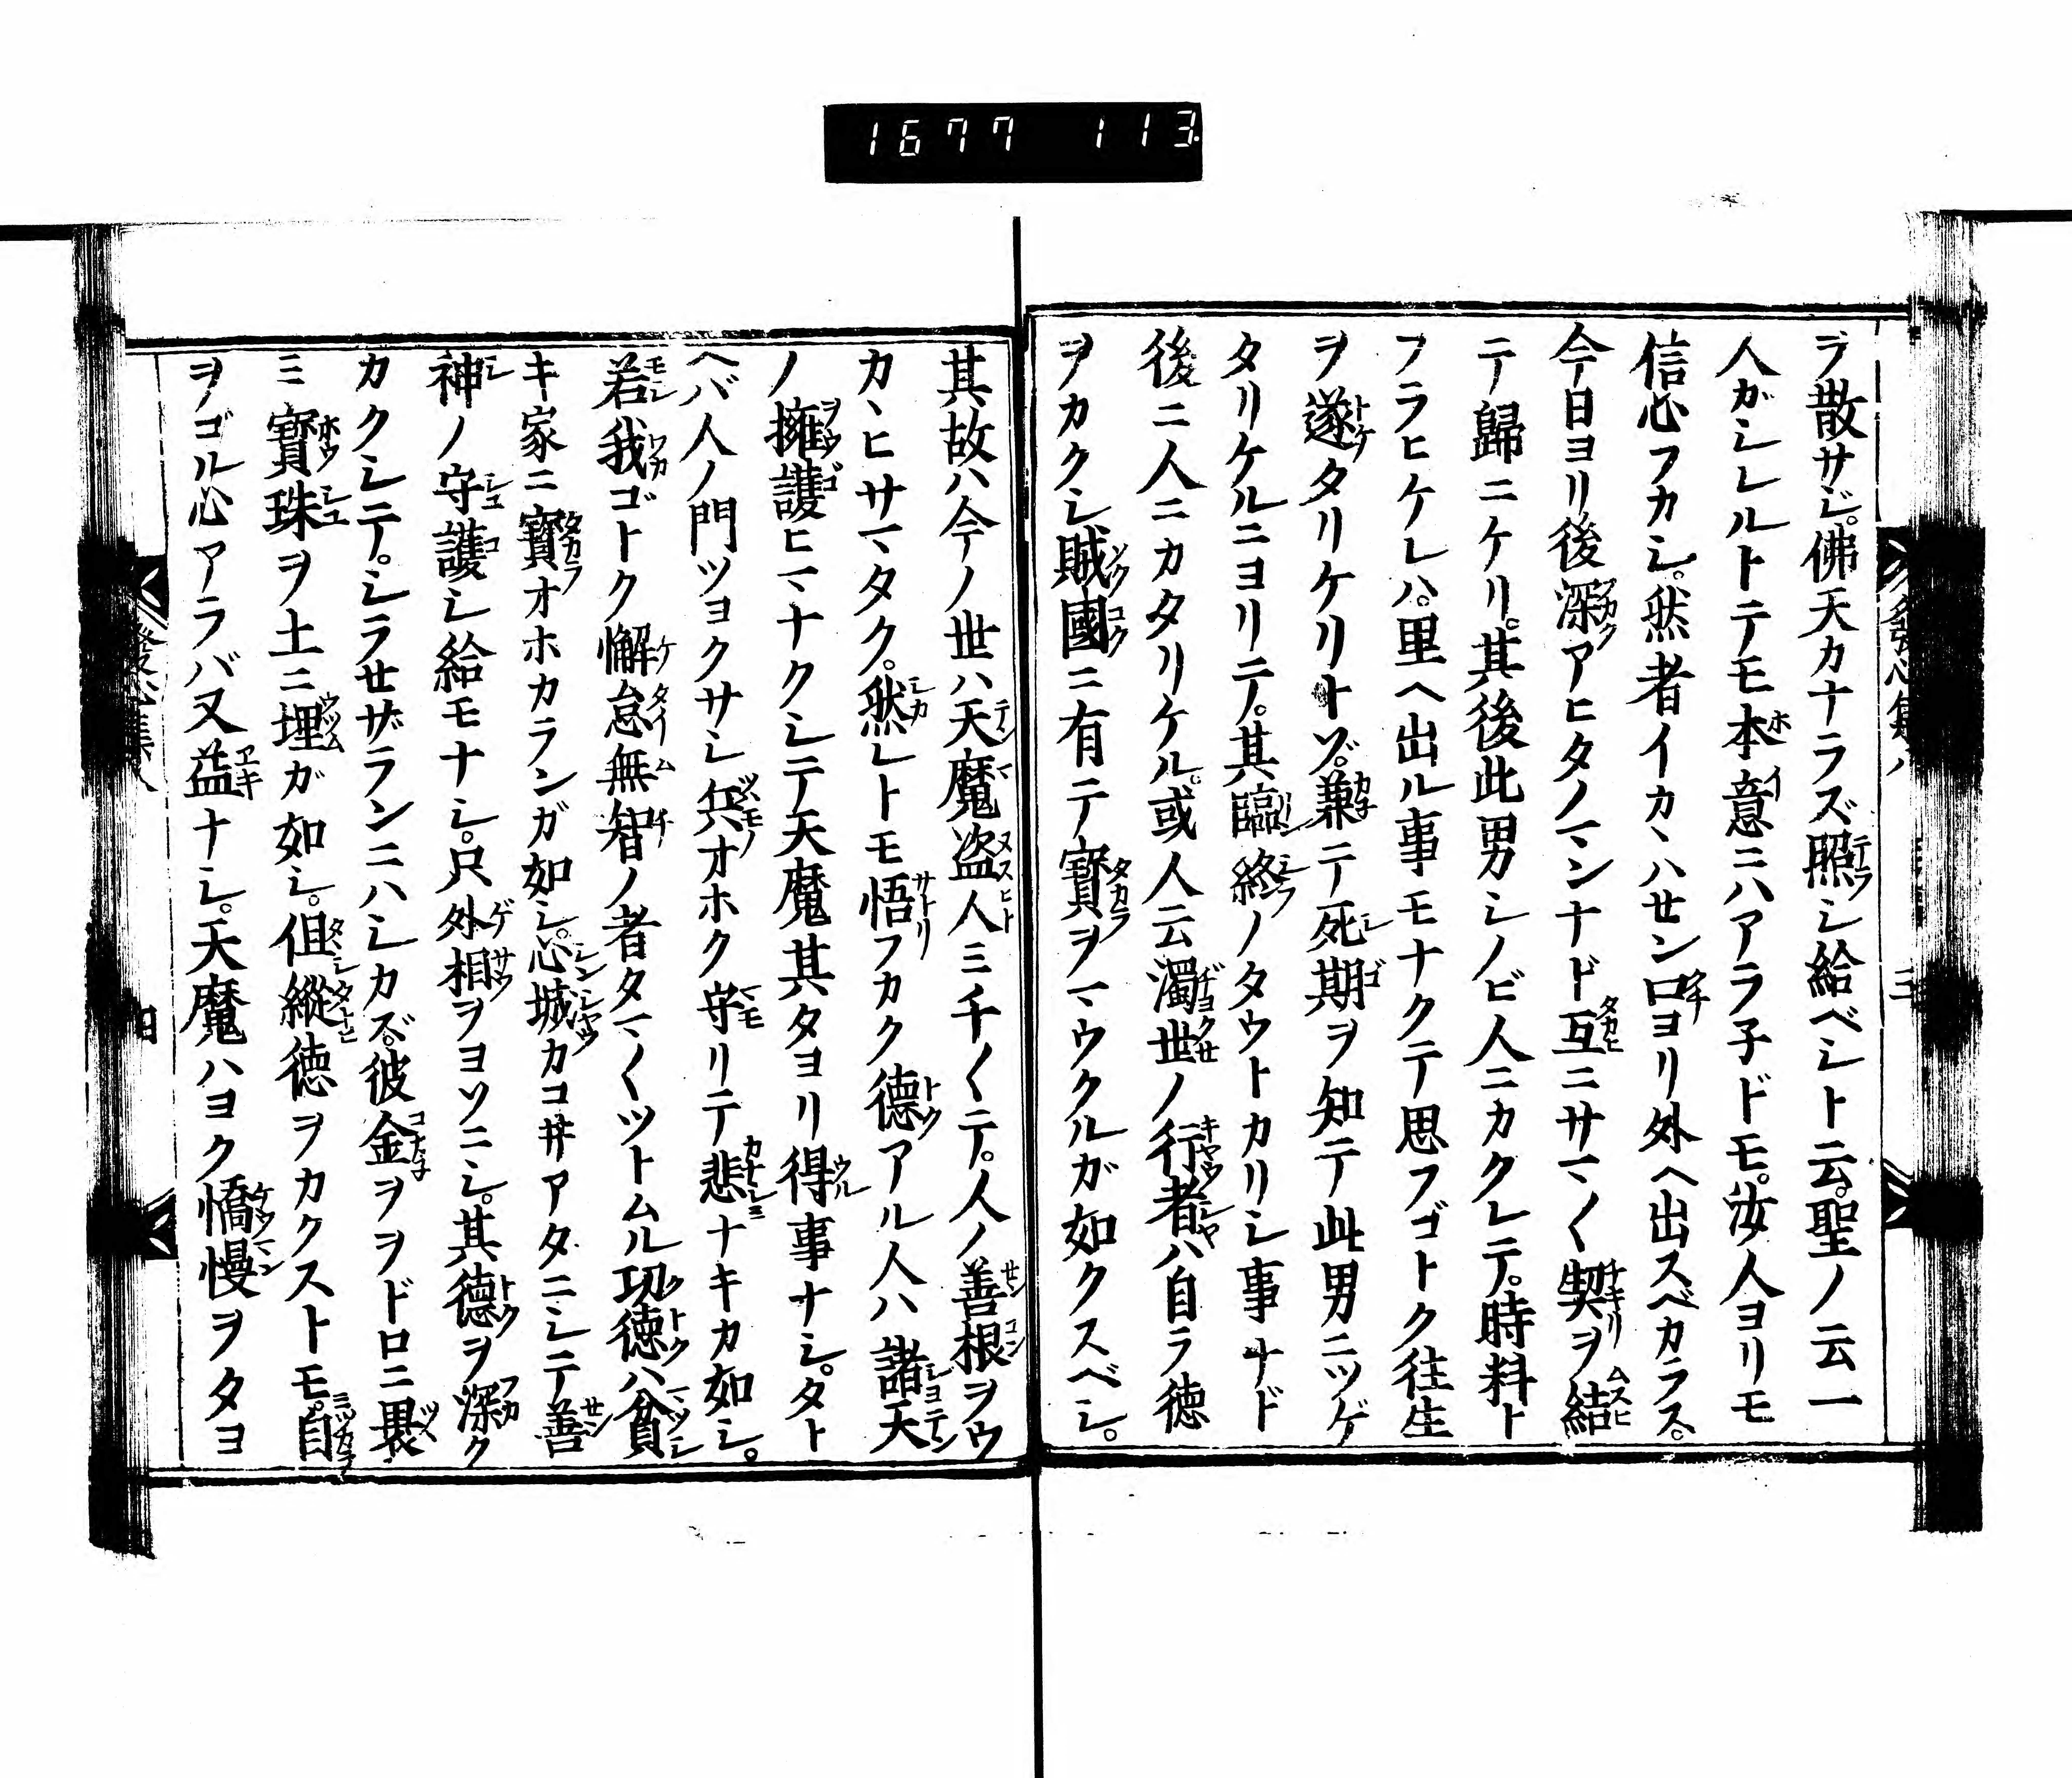 1677 113
ヂ散サジ。佛天カナラズ照シ給ベシト云。聖ノ云一
人ガシレルトテモ本意ニハアラ子ドモ。汝人ヨリモ
信心フカシ。然者イカヽハセン口ヨリ外ヘ出スベカラス。
今日ヨリ後深アヒタノマンナド互ニサマ〱契ヲ結
テ歸ニケリ。其後此男シノビ人ニカクレテ。時料ト
フラヒケレハ。里ヘ出ル事モナクテ思フゴトク往生
ヲ遂タリケリトゾ。兼テ死期ヲ知テ此男ニツゲ
タリケルニヨリテ。其臨終ノタウトカリシ事ナド
後ニ人ニカタリケル。或人云濁世ノ行者ハ自ラ徳
ヲカクシ賊國ニ有テ寳ヲマウクルガ如クスベシ。
其故ハ今ノ世ハ天魔盗人ミチ〱テ。人ノ善根ヲウ
カヽヒサマタク。然レトモ悟フカク德アル人ハ諸天
ノ擁護ヒマナクシテ天魔其タヨリ得事ナシ。タト
ヘバ人ノ門ツヨクサシ兵オホク守リテ悲ナキカ如シ。
若我ゴトク懈怠無智ノ者タマ〱ツトムル功徳ハ貧
キ家ニ寳オホカランガ如シ。心城カコ井アタニシテ善
神ノ守護シ給モナシ。只外相ヲヨソニシ。其德ヲ深ク
カクシテ。シラせザランニハシカズ。彼金ヲヲドロニ褁
ミ寳珠ヲ土ニ埋ガ如シ。但縱徳ヲカクストモ。自
ヲゴル心アラバ又益ナシ。天魔ハヨク憍慢ヲタヨ